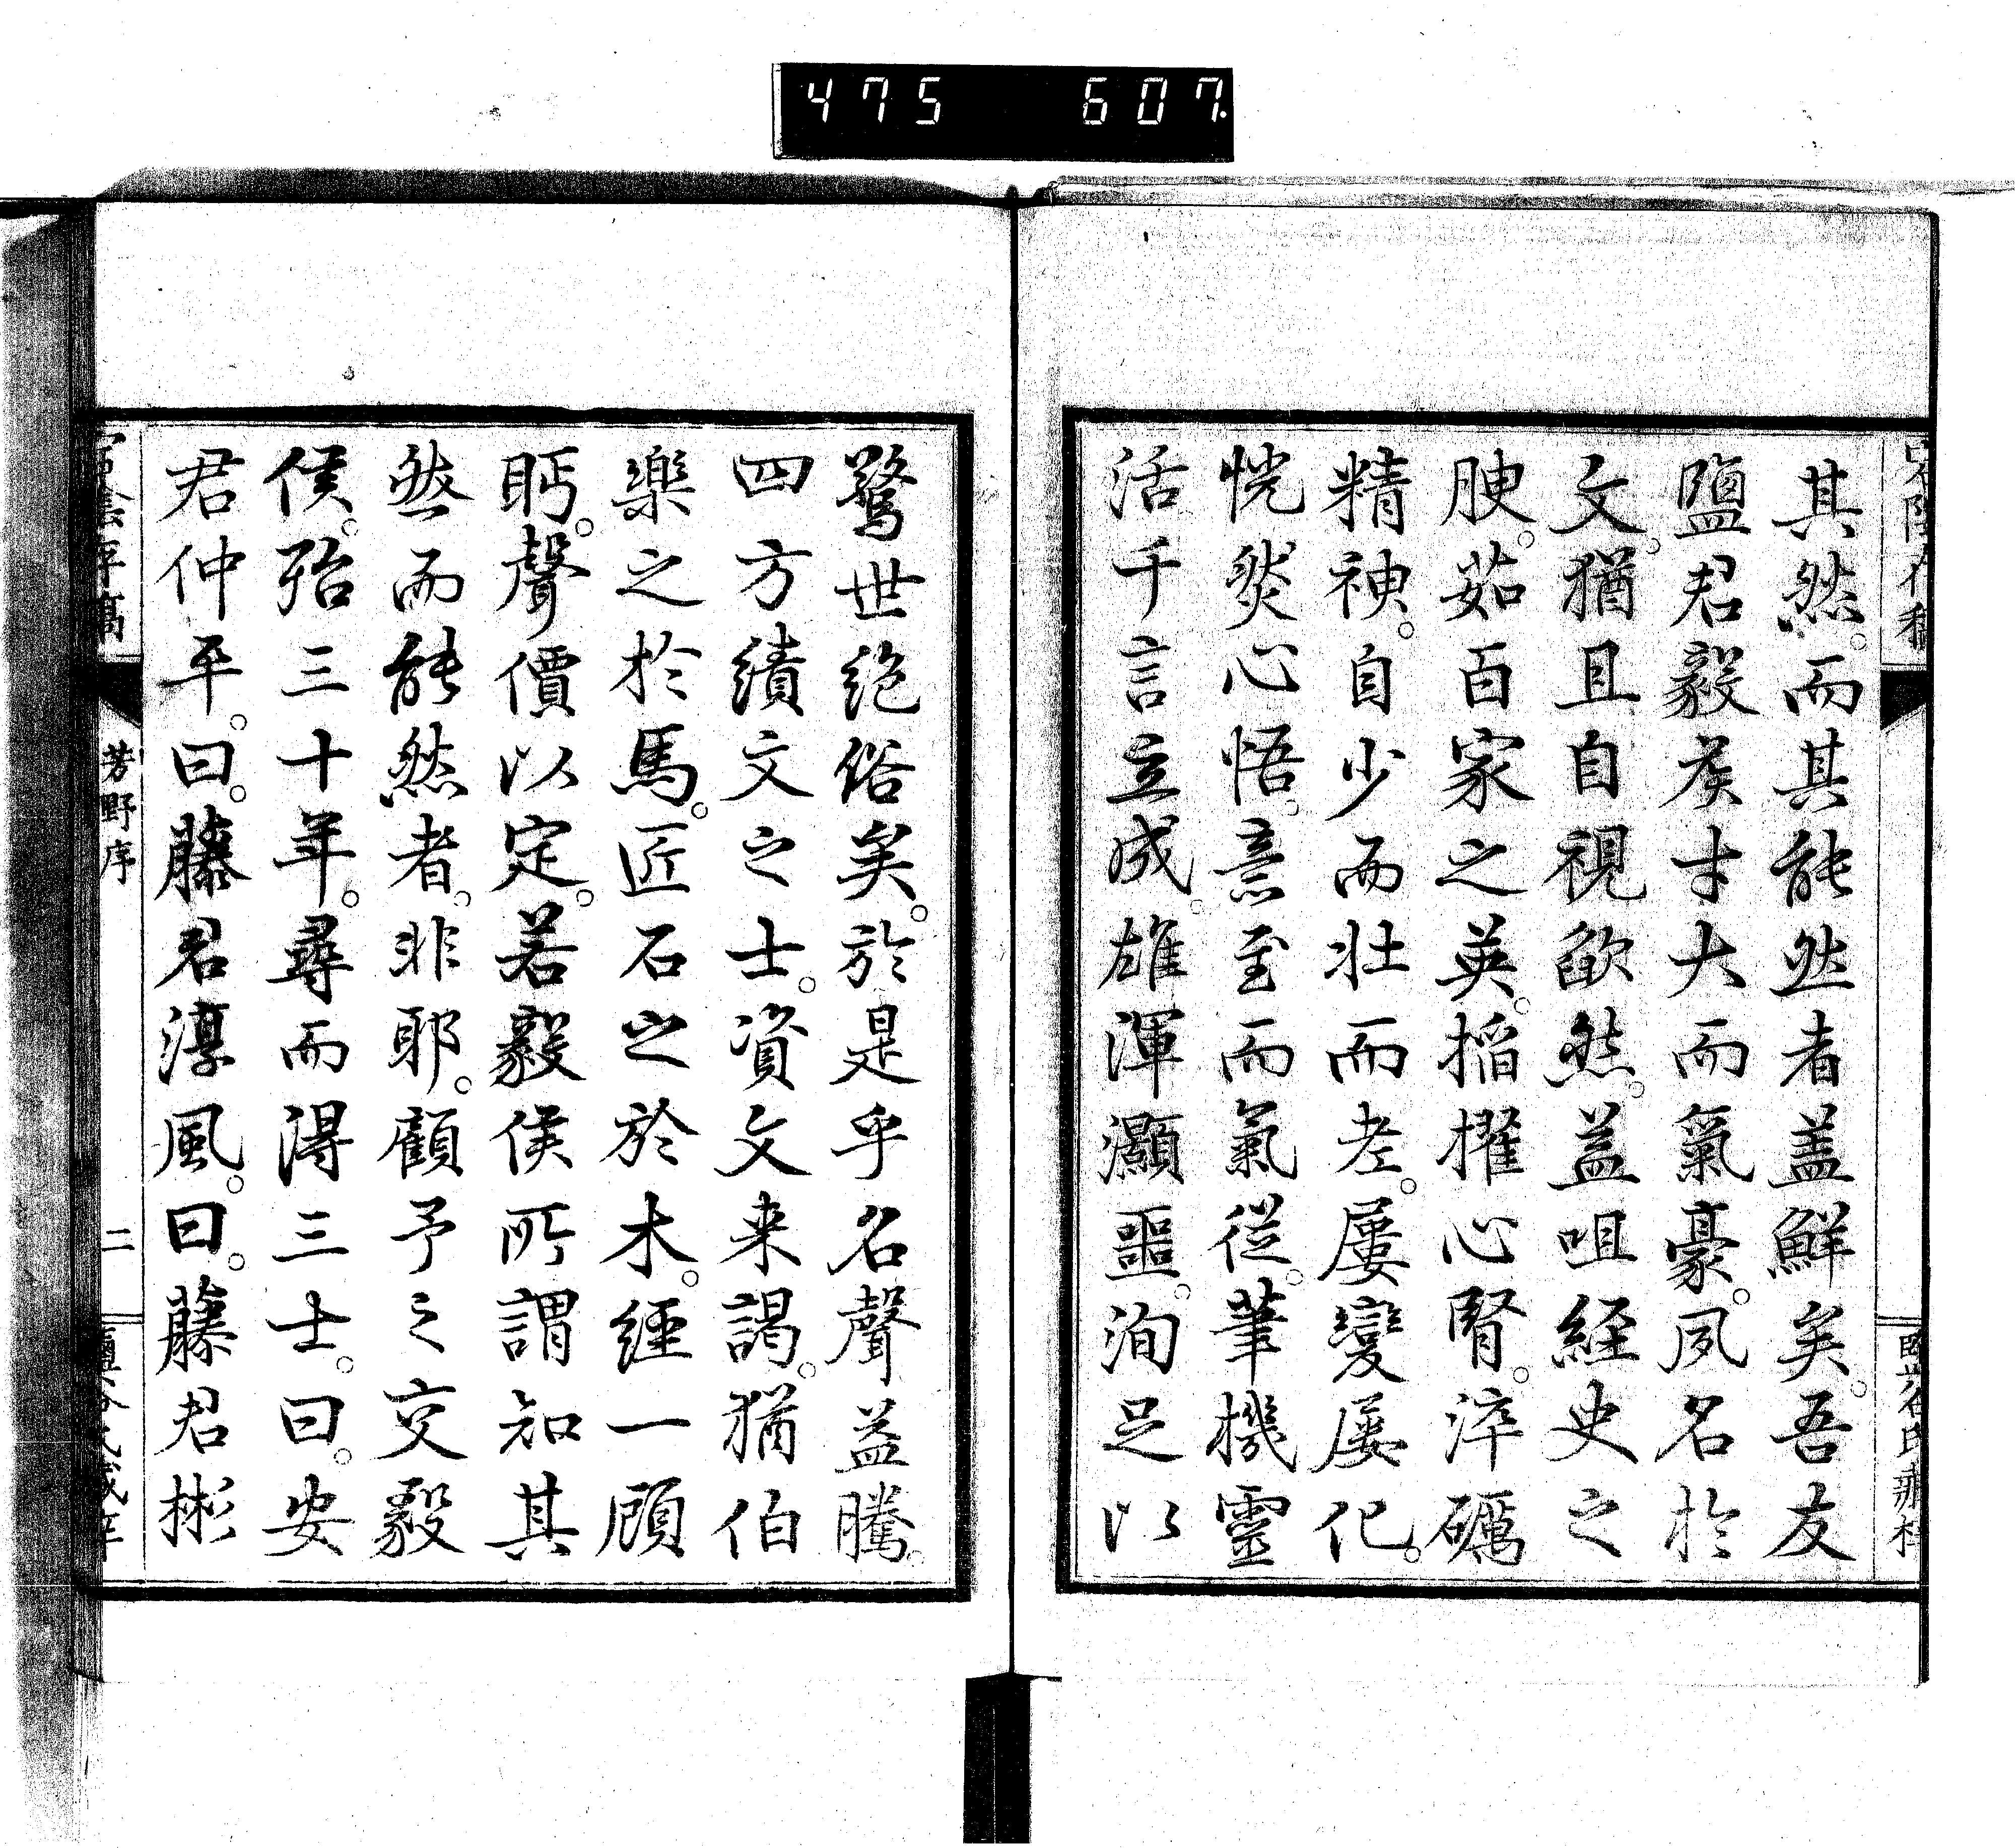 475 607.
其然。而其能然者蓋鮮矣。吾友
鹽君毅矦才大而氣豪。夙名於
文。猶且自視欿然。蓋咀經史之
腴。茹百家之英。搯擢心腎。淬礪
精神。自少而壯而老。屢變屢化。
恍然心悟。意至而氣從。筆機靈
活千言立成。雄渾灝噩。洵足以
驚世絶俗矣。於是乎名聲益騰。
四方績文之士。資文来謁。猶伯
樂之於馬。匠石之於木。經一顧
眄。聲價以定。若毅侯所謂知其
然而能然者。非耶。顧予之交毅
侯。殆三十年。尋而得三士。曰。安
君仲平。曰。藤君淳風。曰。藤君彬
宕陰存稿
芳野序
二